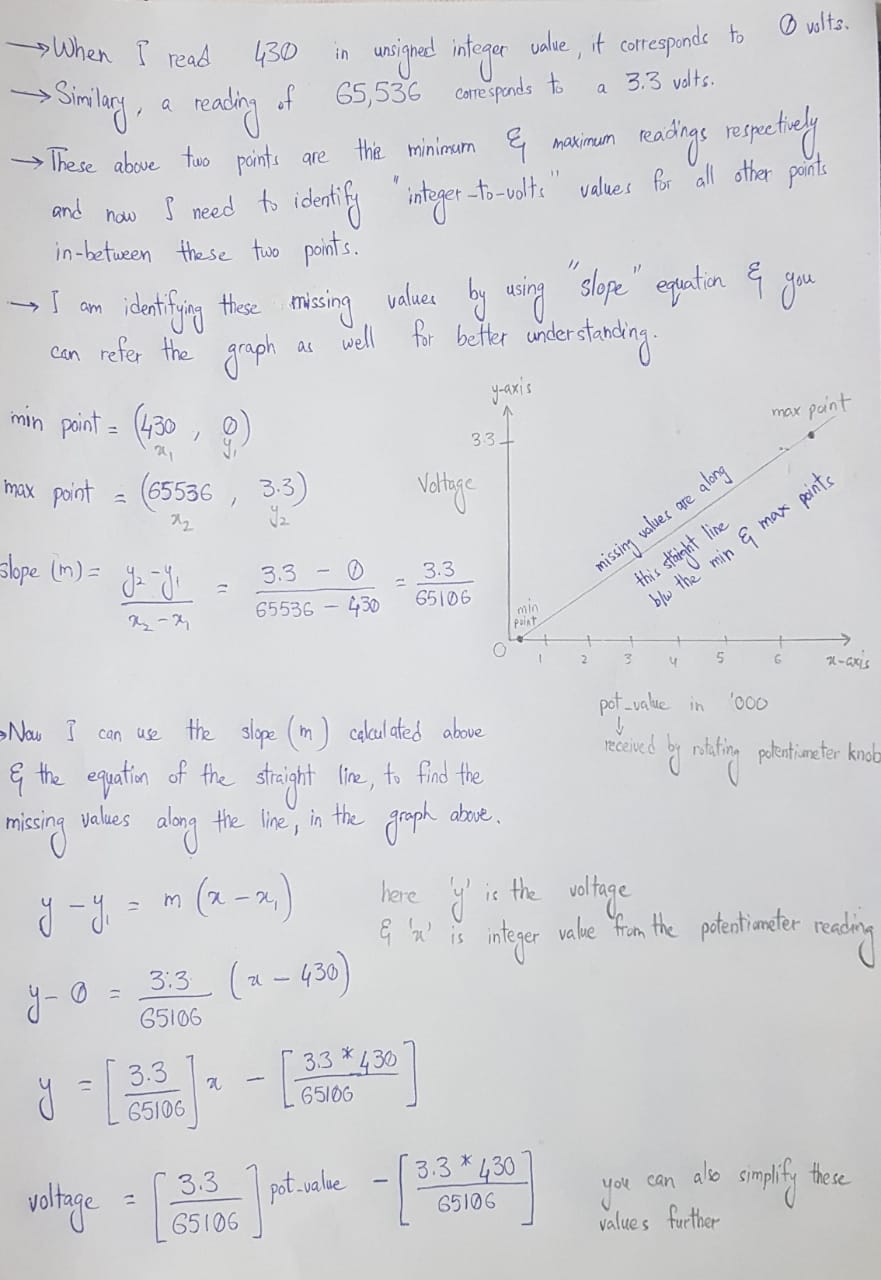 → When I read 430 in unsigned integer value, it corresponds to 0 volts.
→ Similary, a reading of 65,536 corresponds to a 3.3 volts.
→ These above two points are the minimum & maximum readings respectively
and now I need to identify "integer-to-volts" values for all other points
in-between these two points.
→ I am identifying these missing values by using "slope" equation & you
can refer the graph as well for better understanding.
min point = (430 , 0)
x₁ y₁
max point = (65536 , 3.3)
x₂ y₂
slope (m) = y₂-y₁ / x₂-x₁ = 3.3 - 0 / 65536 - 430 = 3.3 / 65106
y-axis
max point
3.3
Voltage
missing values are along
this straight line
b/w the min & max points
min
point
0 1 2 3 4 5 6 x-axis
pot_value in '000
↓
received by rotating potentiometer knob
→ Now I can use the slope (m) calculated above
& the equation of the straight line, to find the
missing values along the line, in the graph above.
y - y₁ = m (x - x₁)
here 'y' is the voltage
& 'x' is integer value from the potentiometer reading
y - 0 = 3.3 / 65106 (x - 430)
y = [3.3 / 65106] x - [3.3 * 430 / 65106]
voltage = [3.3 / 65106] pot_value - [3.3 * 430 / 65106]
you can also simplify these
values further